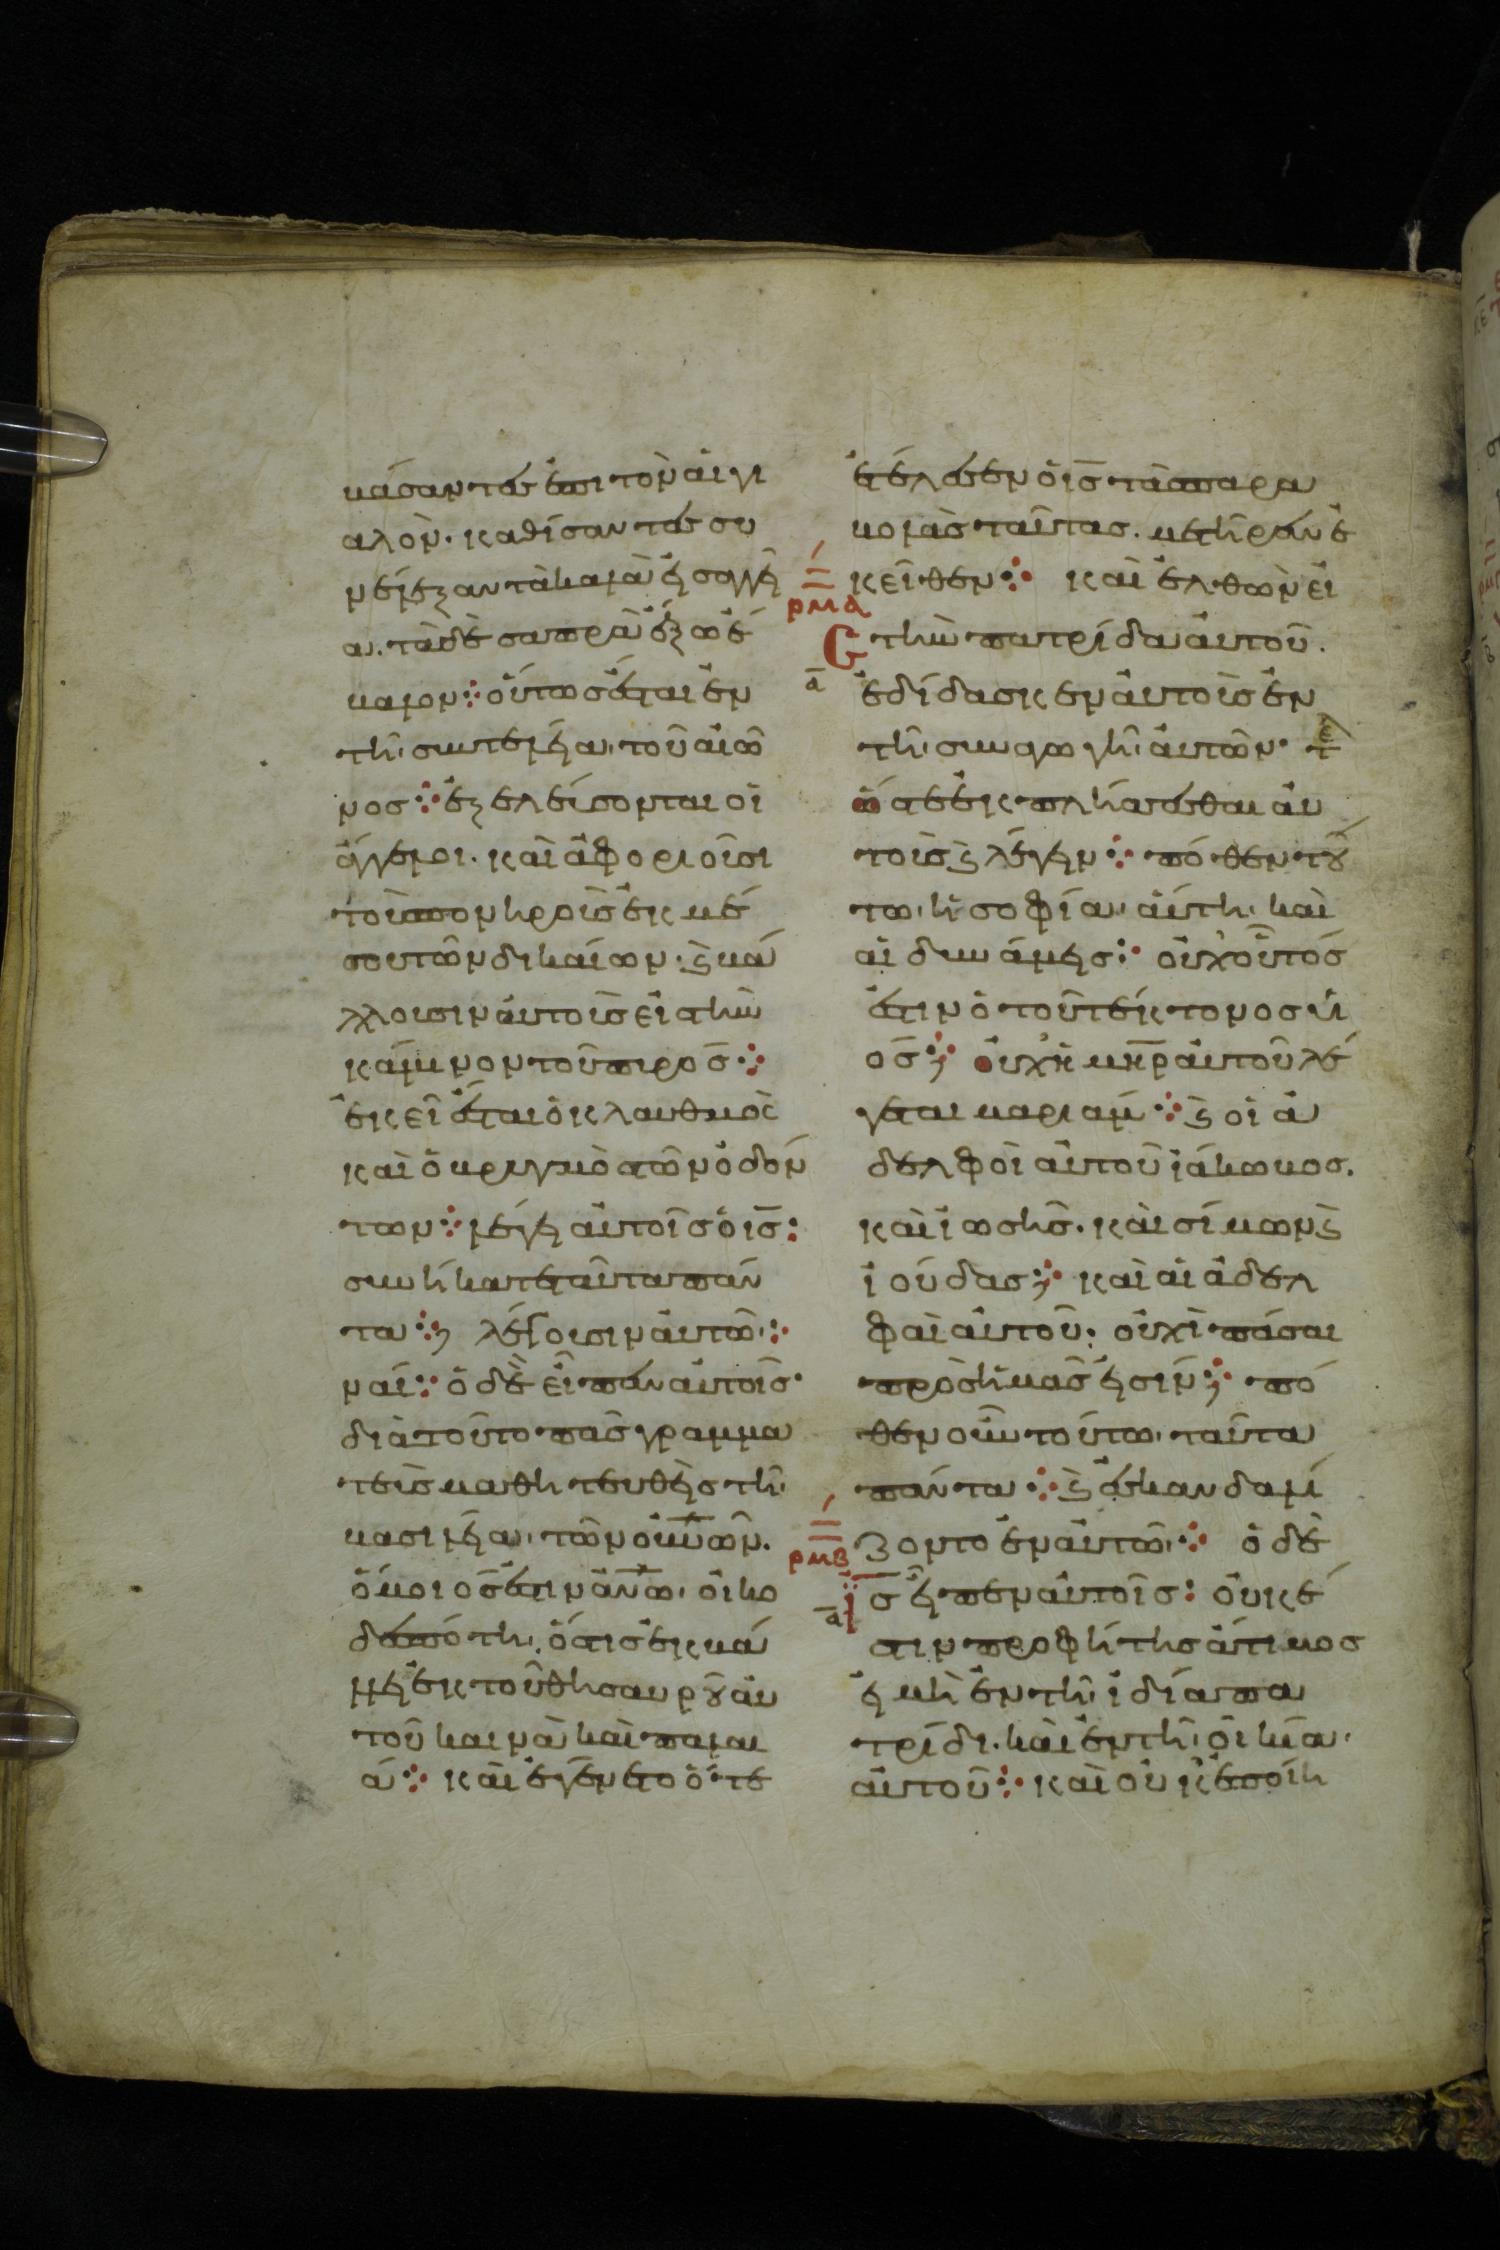 κάσαντες ἐπι τὸν ἀιγι
αλὸν. καθίσαντες συ
νέλεξαν τὰ καλὰ εἰς ἀγγεῖ
α. τὰ δὲ σαπρὰ ἔξω ἔ
βαλον· οὕτως ἔσται ἐν
τῆ συντελεία τοῦ αἰῶ
νος· ἐξελεύσονται οἱ
ἄγγελοι. καὶ ἀφοριοῦσι
τοὺς πονηροὺς ἐκ μέ
σου τῶν δικαίων. ϗ βά
λλουσιν ἀυτοὺς εἰς τὴν
κάμινον τοῦ πυρος·
ἐκεῖ ἔσται ὁ κλαυθμὸς
καὶ ὁ βρυγμὸς τῶν ὀδόν
των· λέγει ἀυτοῖς ὁ ις̅:
συνήκατε ταῦτα πάν
τα; λέγουσιν ἀυτῶ·
ναί· ὁ δὲ εἶπεν ἀυτοῖς·
διὰ τοῦτο πᾶς γραμμα
τεὺς μαθητευθεὶς τῆ
βασιλεία τῶν οὐν̅ῶν.
ὅμοιος ἐστιν ἀν̅ω οἰκο
δεσπότη. ὅστις ἐκβά
λλει ἐκ τοῦ θησαυροῦ ἀυ
τοῦ καινὰ καὶ παλαι
ά· καὶ ἐγένετο ὅτε
ἐτέλεσεν ὁ ις̅ τὰς παρα
βολὰς ταύτας. μετῆρεν ἐ
κεῖθεν· καὶ ἐλθὼν εἰ
ρμα
ς τὴν πατρίδα ἀυτοῦ.
α̅
ἐδίδασκεν ἀυτοὺς ἐν
τῆ συναγωγῆ ἀυτῶν·
ὥστε ἐκπλήττεσθαι ἀυ
τοὺς ϗ λέγειν· πόθεν τού
τω ἡ σοφία ἁύτη καὶ
αἱ δυνάμεις· οὐχ οὗτός
ἐστιν ὁ τοῦ τέκτονος υἱ
ος̅; οὐχὶ ἡ μη̅ρ ἀυτοῦ λέ
γεται μαριαμ· ϗ οἱ ἀ
δελφοὶ ἀυτοῦ ἰάκωβος.
καὶ ἰωσῆς. καὶ σίμων ϗ
ἰούδας; καὶ αἱ ἀδελ
φαὶ ἀυτοῦ. οὐχὶ πᾶσαι
πρὸς ἡμᾶς εἰσίν; πό
θεν οὖν τούτω ταῦτα
πάντα· ϗ ἐσκανδαλί
ζοντο ἐν ἀυτῶ· ὁ δὲ
ρμβ
ι̅ς̅ εἶπεν ἀυτοῖς: οὐκ ἔ
α̅
στιν προφήτης ἄτιμος
εἰ μὴ ἐν τῆ ἰδία πα
τρίδι. καὶ ἐν τῆ οἰκία
ἀυτοῦ· καὶ οὐκ ἐποίη